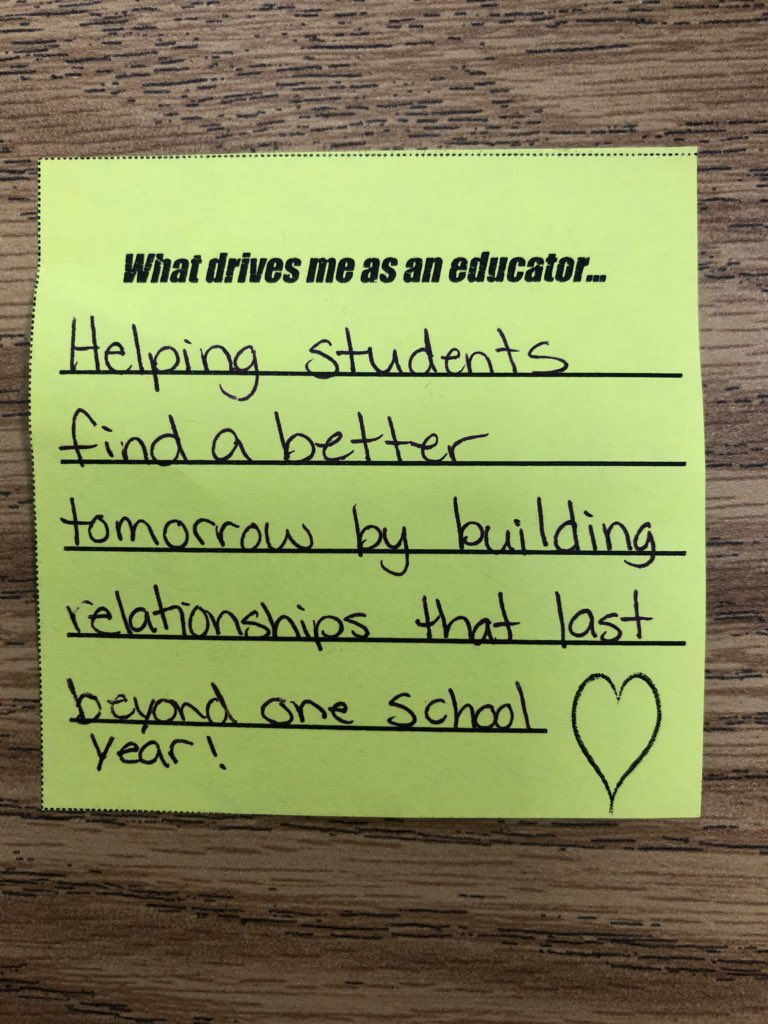 What drives me as an educator...
Helping students
find a better
tomorrow by building
relationships that last
beyond one school
year!